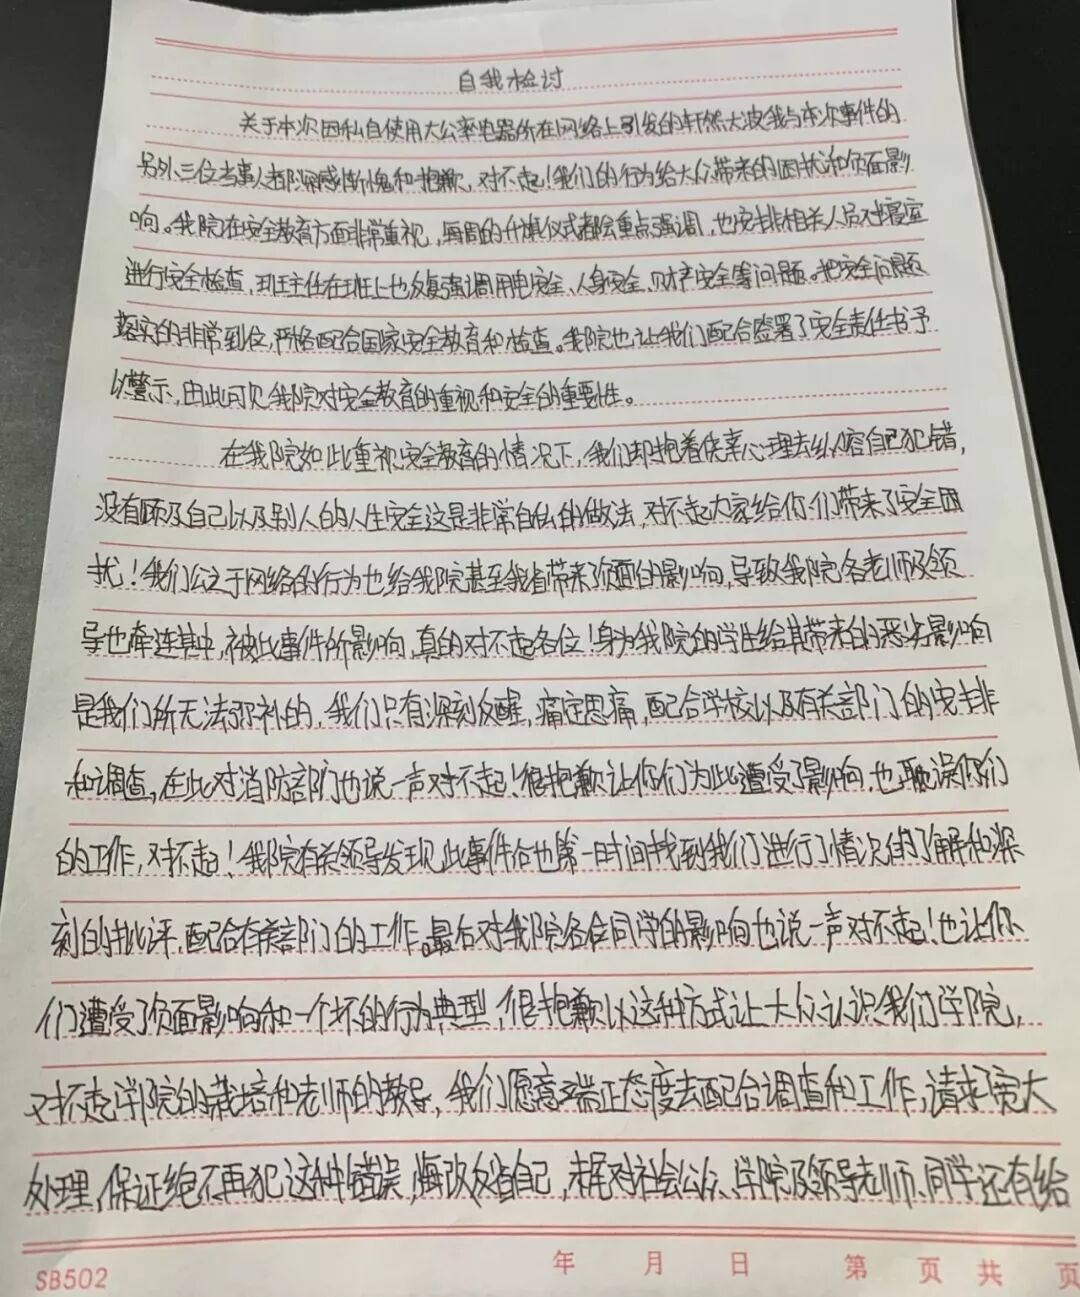 自我检讨
关于本次因私自使用大公率电器所在网络上引发的轩然大波我与本次事件的
另外三位当事人都深感惭愧和抱歉，对不起！我们的行为给大众带来的困扰和负面影
响。我院在安全教育方面非常重视，每周的升旗仪式都会重点强调，也安排相关人员对寝室
进行安全检查，班主任在班上也反复强调用电安全、人身安全、财产安全等问题。把安全问题
落实的非常到位，严格配合国家安全教育和检查。我院也让我们配合签署了安全责任书予
以警示，由此可见我院对安全教育的重视和安全的重要性。
在我院如此重视安全教育的情况下，我们却抱着侥幸心理去纵容自己犯错，
没有顾及自己以及别人的人生安全这是非常自私的做法，对不起大家给你们带来了安全困
扰！我们公之于网络的行为也给我院甚至我省带来负面的影响，导致我院各老师及领
导也牵连其中，被此事件所影响，真的对不起各位！身为我院的学生给其带来的恶劣影响
是我们所无法弥补的，我们只有深刻反醒，痛定思痛，配合学校以及有关部门的安排
和调查，在此对消防部门也说一声对不起！很抱歉让你们为此遭受了影响，也耽误你们
的工作，对不起！我院有关领导发现此事件后也第一时间找到我们进行了情况的了解和深
刻的批评，配合有关部门的工作。最后对我院各位同学的影响也说一声对不起！也让你
们遭受了负面影响和一个坏的行为典型，很抱歉以这种方式让大众认识我们学院，
对不起学院的栽培和老师的教导，我们愿意端正态度去配合调查和工作，请求宽大
处理，保证绝不再犯这种错误，悔改反省自己，未尾对社会公众、学院及领导老师、同学还有给
SB502 年 月 日 第 页 共 页